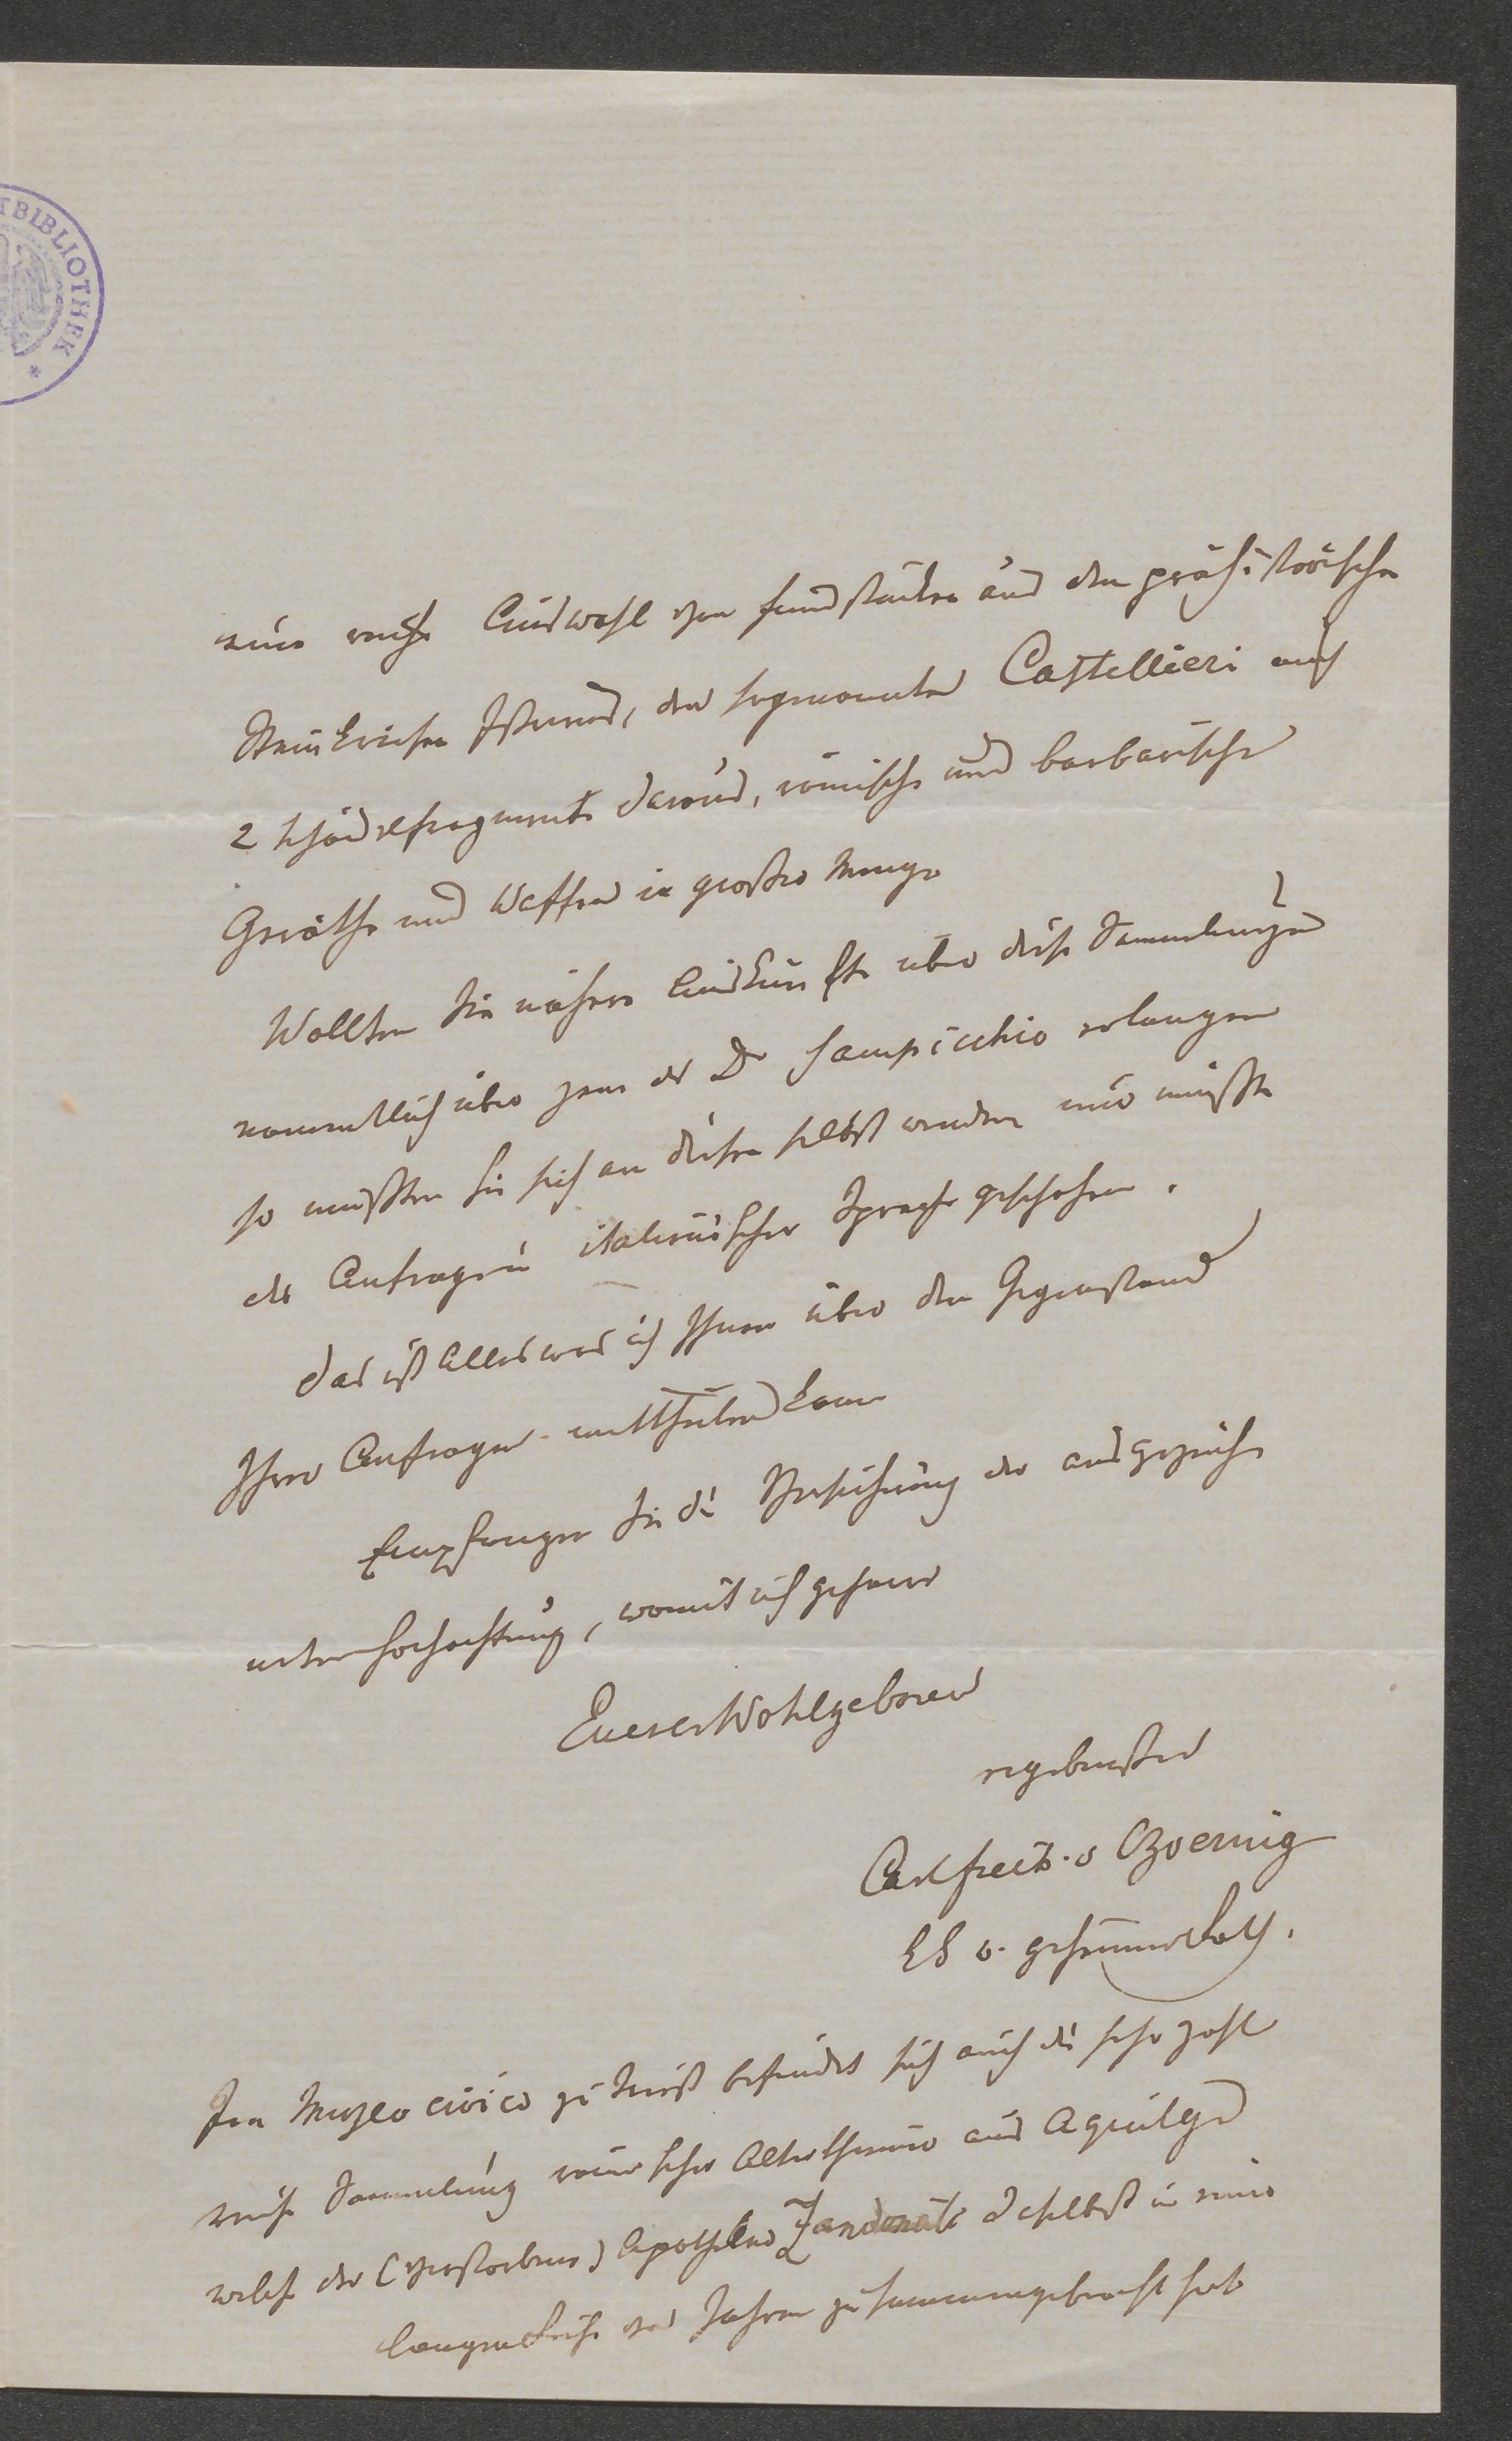 TBIBLIOTHEK *
eine reiche Auswahl von Fundstücken aus den prähistorischen
Istriens, den sogenannten Castellieri auch
2 Schädelfragmente daraus, römische und barbarische
Geräthe und Waffen in großer Menge
Wollten Sie nähere Auskünfte über diese Sammlungen
namentlich über jene des Dr Scampicchio erlangen
so müßten Sie sich an diesen selbst wenden und müßte
die Anfrage in italienischer Sprache geschehen.
Das ist Alles was ich Ihnen über den Gegenstand
Ihrer Anfragen mittheilen kann
Empfangen Sie die Versicherung der ausgezeich-
neten Hochachtung, womit ich geharre
Euerer Wohlgeboren
ergebenster
Carl Freih. v Czoernig
geheimer Rath.
Im Museo civico zu Triest befindet sich auch die sehr zahl
reiche Sammlung römischer Alterthümer aus Aquileja
welche der (verstorbene) Apotheker Zandonati daselbst in einer
langen Reihe von Jahren zusammengebracht hat